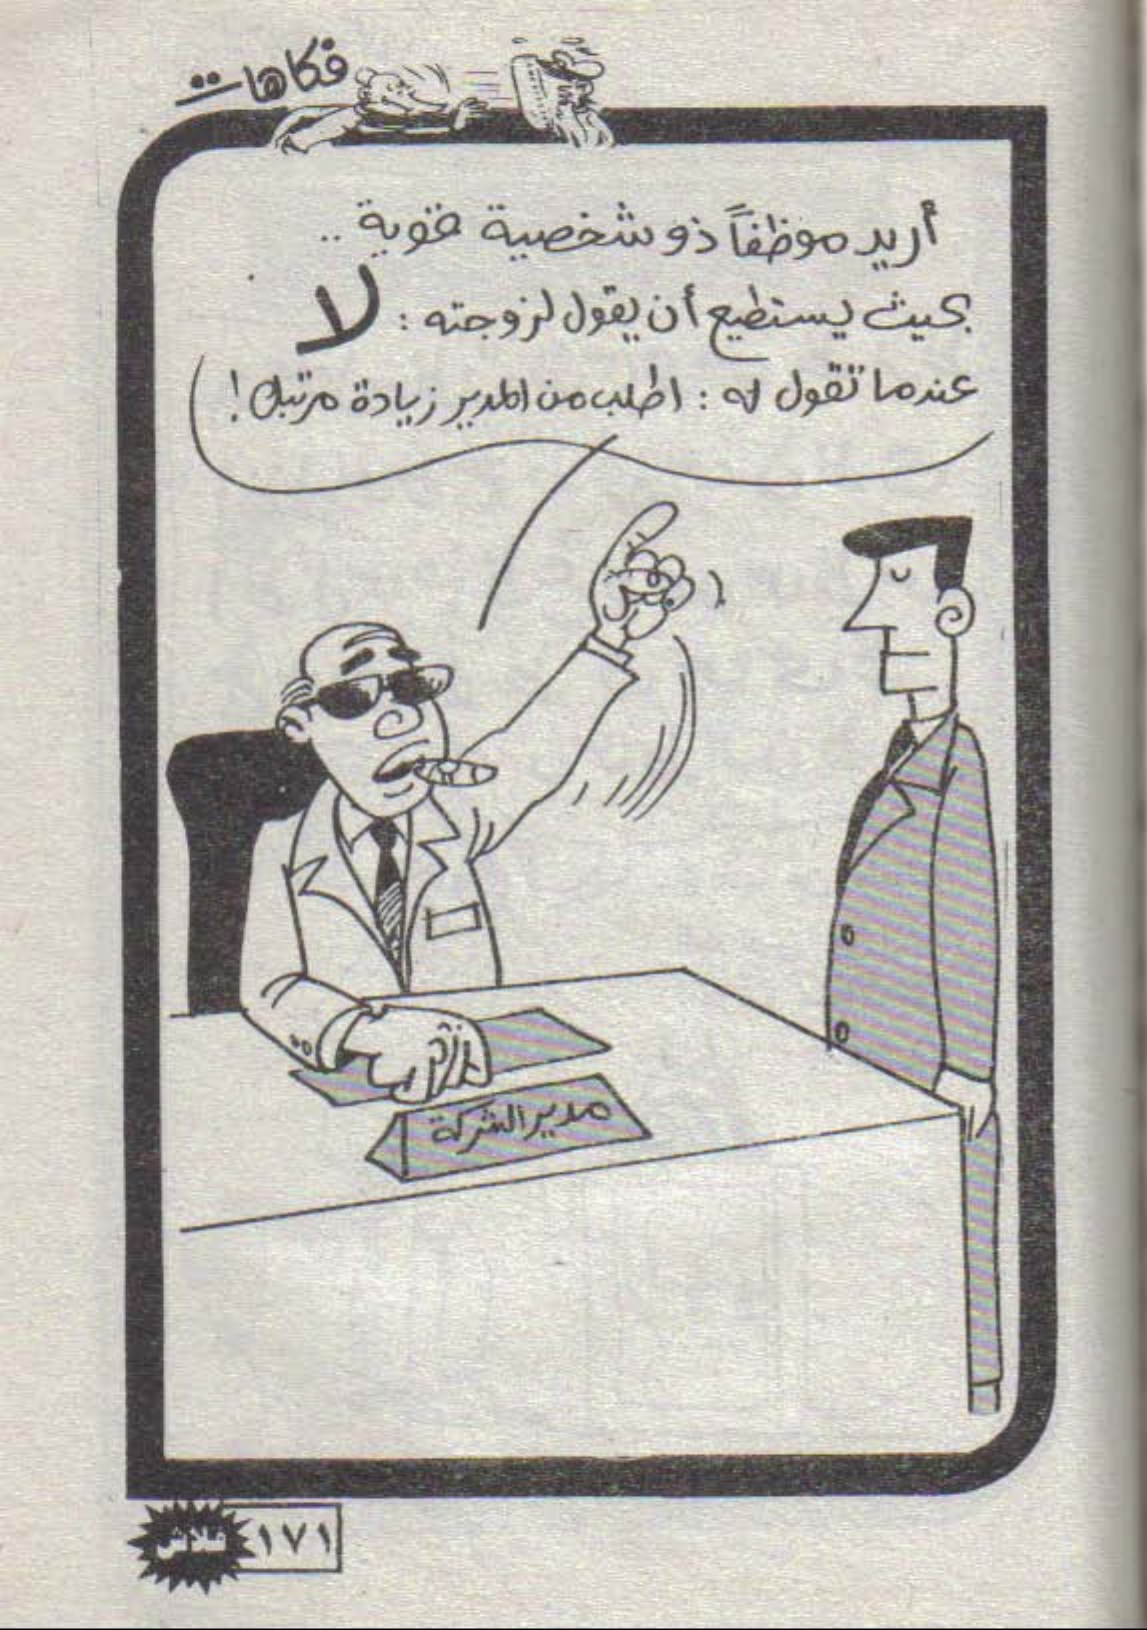 فكاهات
أريد موظفاً ذو شخصية قوية ..
بحيث يستطيع أن يقول لزوجته : لا
عندما تقول له : اطلب من المدير زيادة مرتبك !
مدير الشركة
١٧١
فلاش